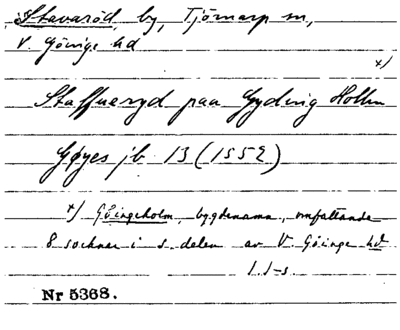 Stavaröd by, Tjörnarp sn,
V. Göinge hd
x/
Staffueryd paa Gyding Hollm
Gøyes jb 13 (1552)
x/ Göingeholm, bygdenamn, omfattande
8 socknar i s. delen av V. Göinge hd
Nr 5368.